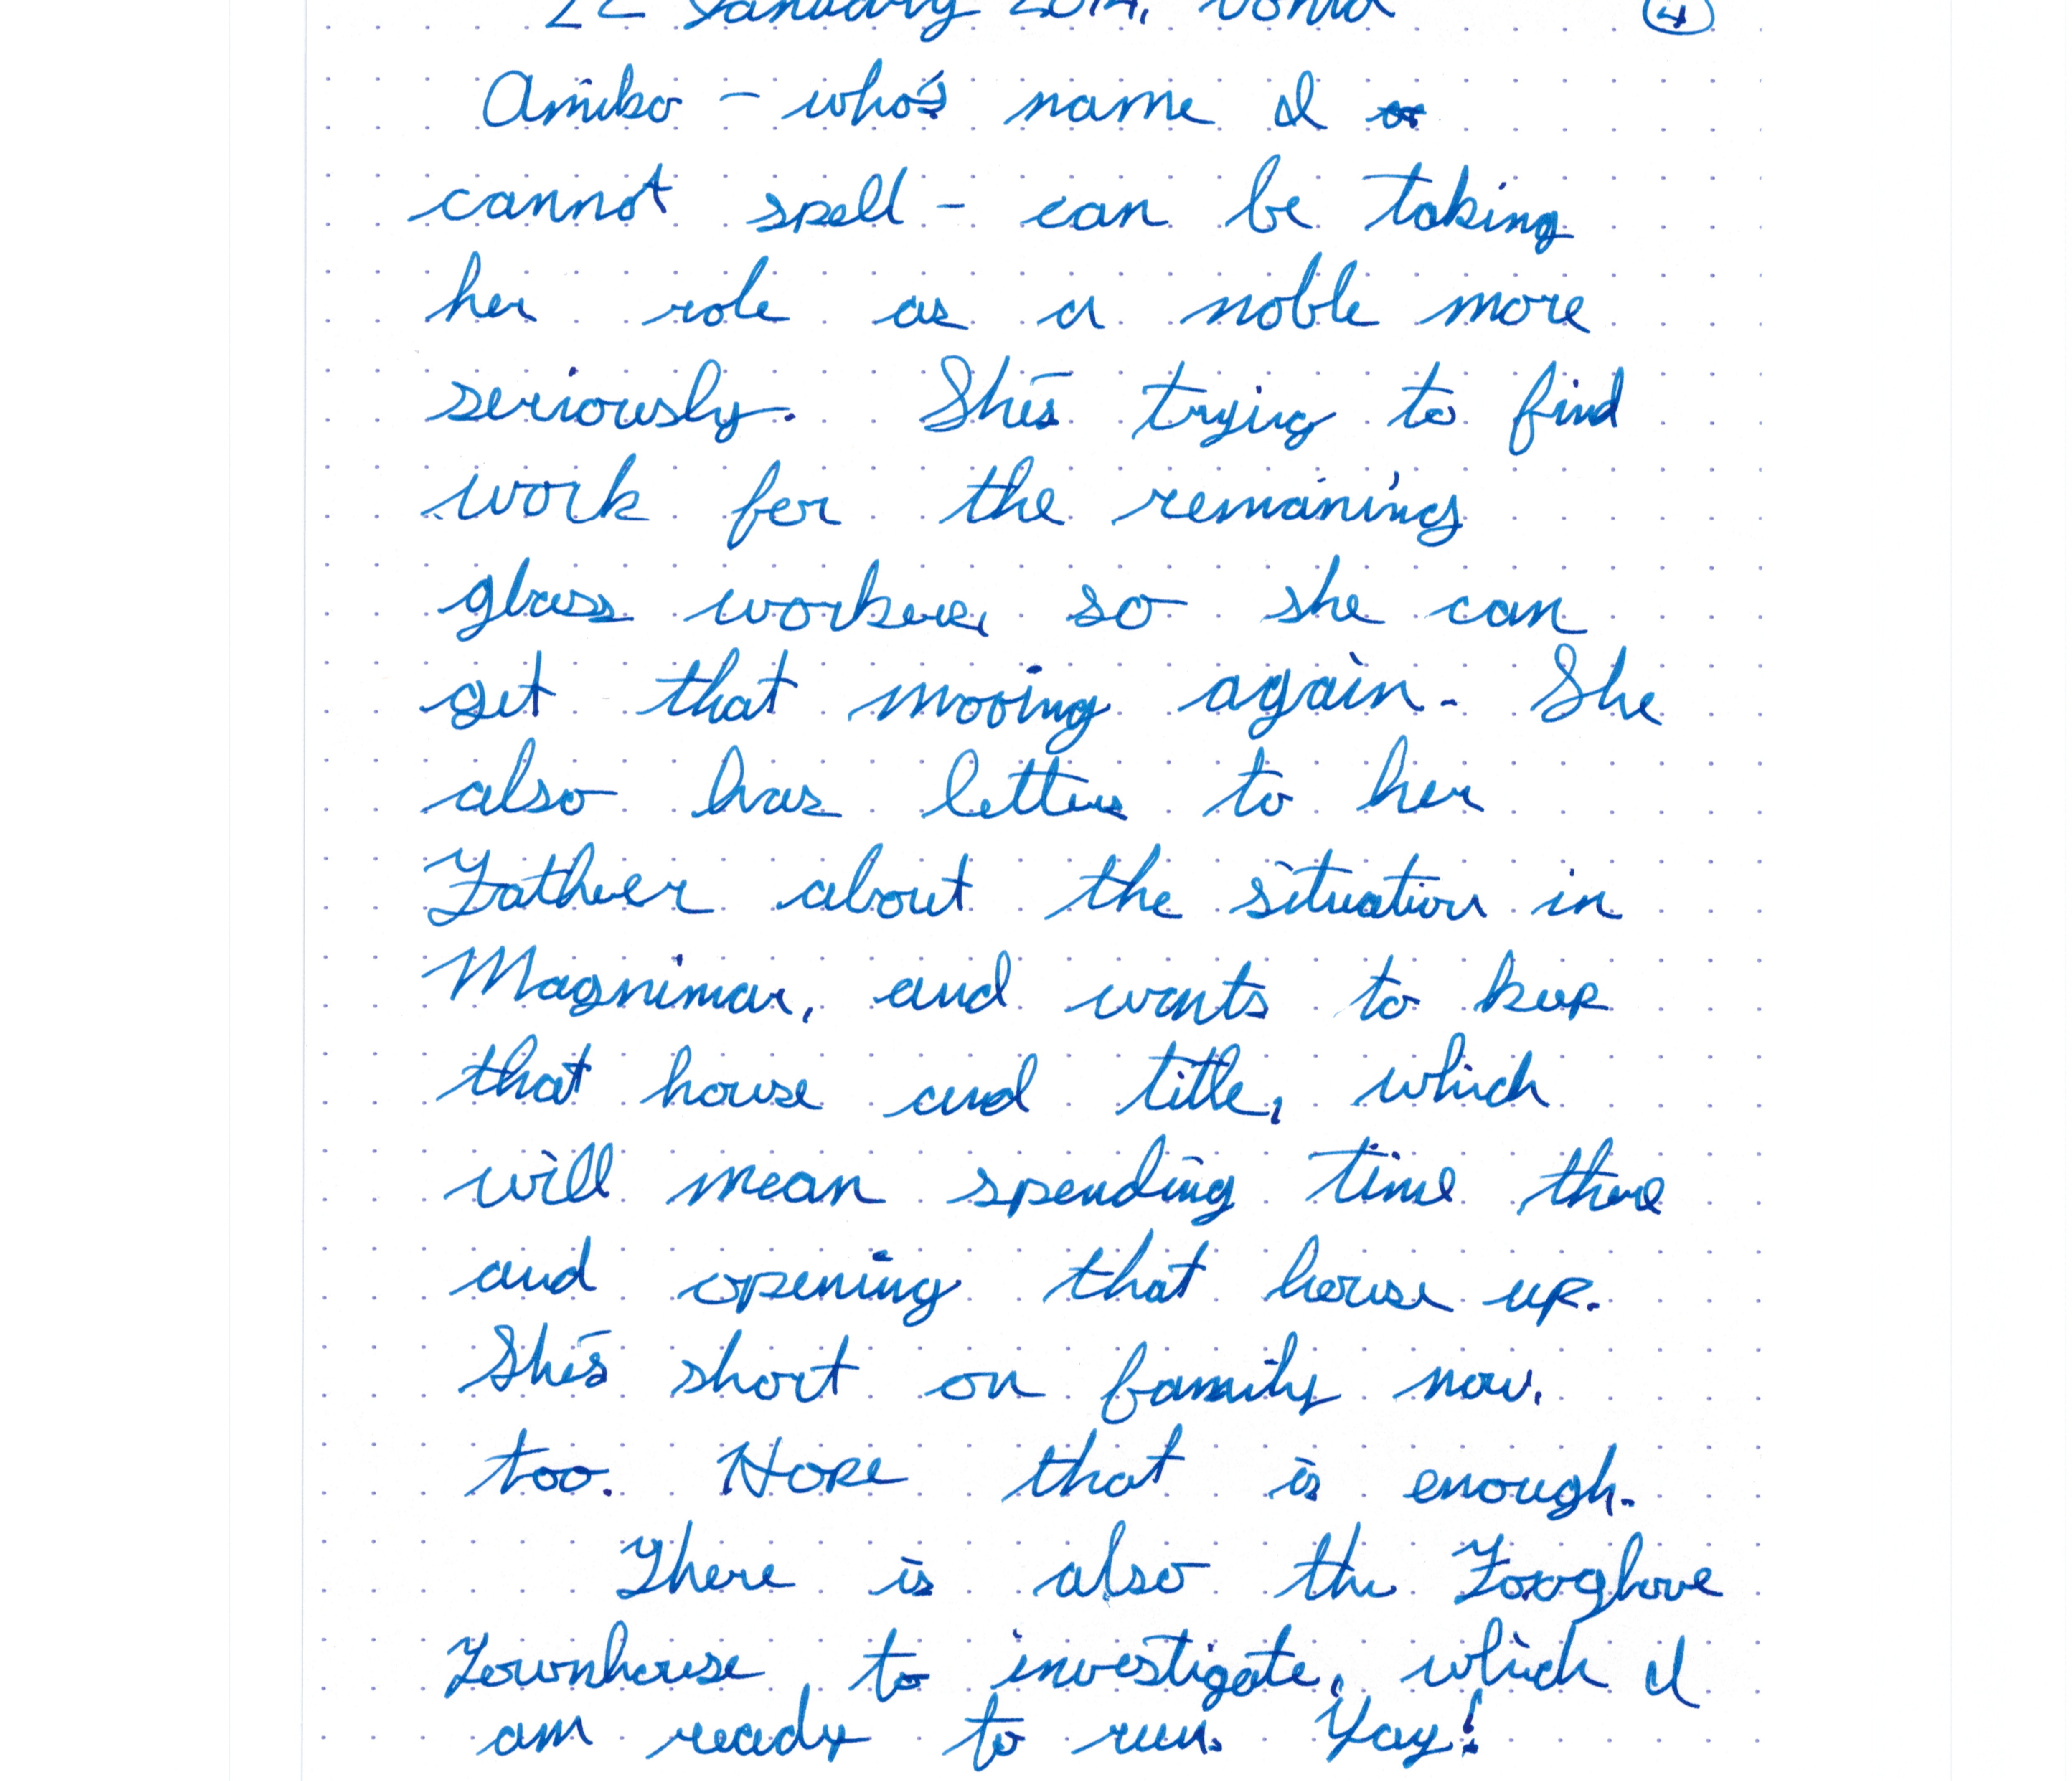 22 January 2014.
Amiko - who's name I
cannot spell - can be taking
her role as a noble more
seriously. She's trying to find
work for the remaning
glass workers so she can
get that moving again. She
also has letters to her
Father about the situation in
Magnimar, and wants to keep
that house and title, which
will mean spending time there
and opening that house up.
She's short on family now.
too. Hope that is enough.
There is also the Foxglove
Townhouse to investigate, which I
am ready to run. Yay!